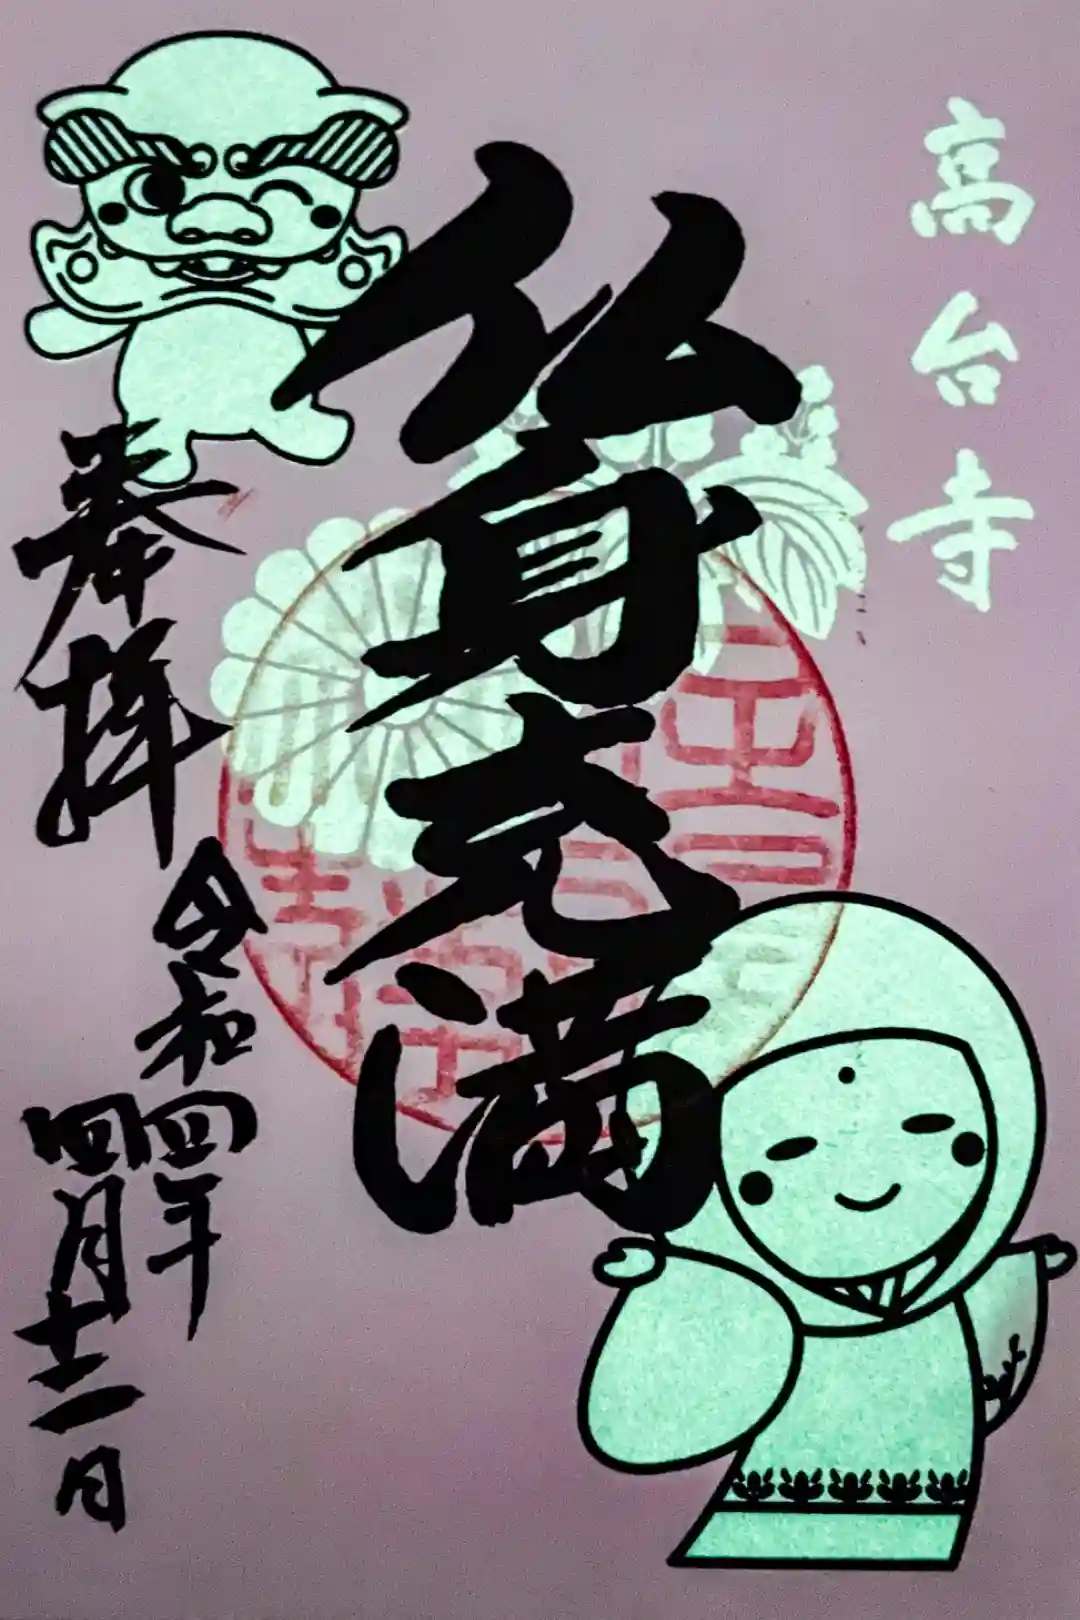 高台寺
仏身充満
奉拝
令和四年
四月十二日